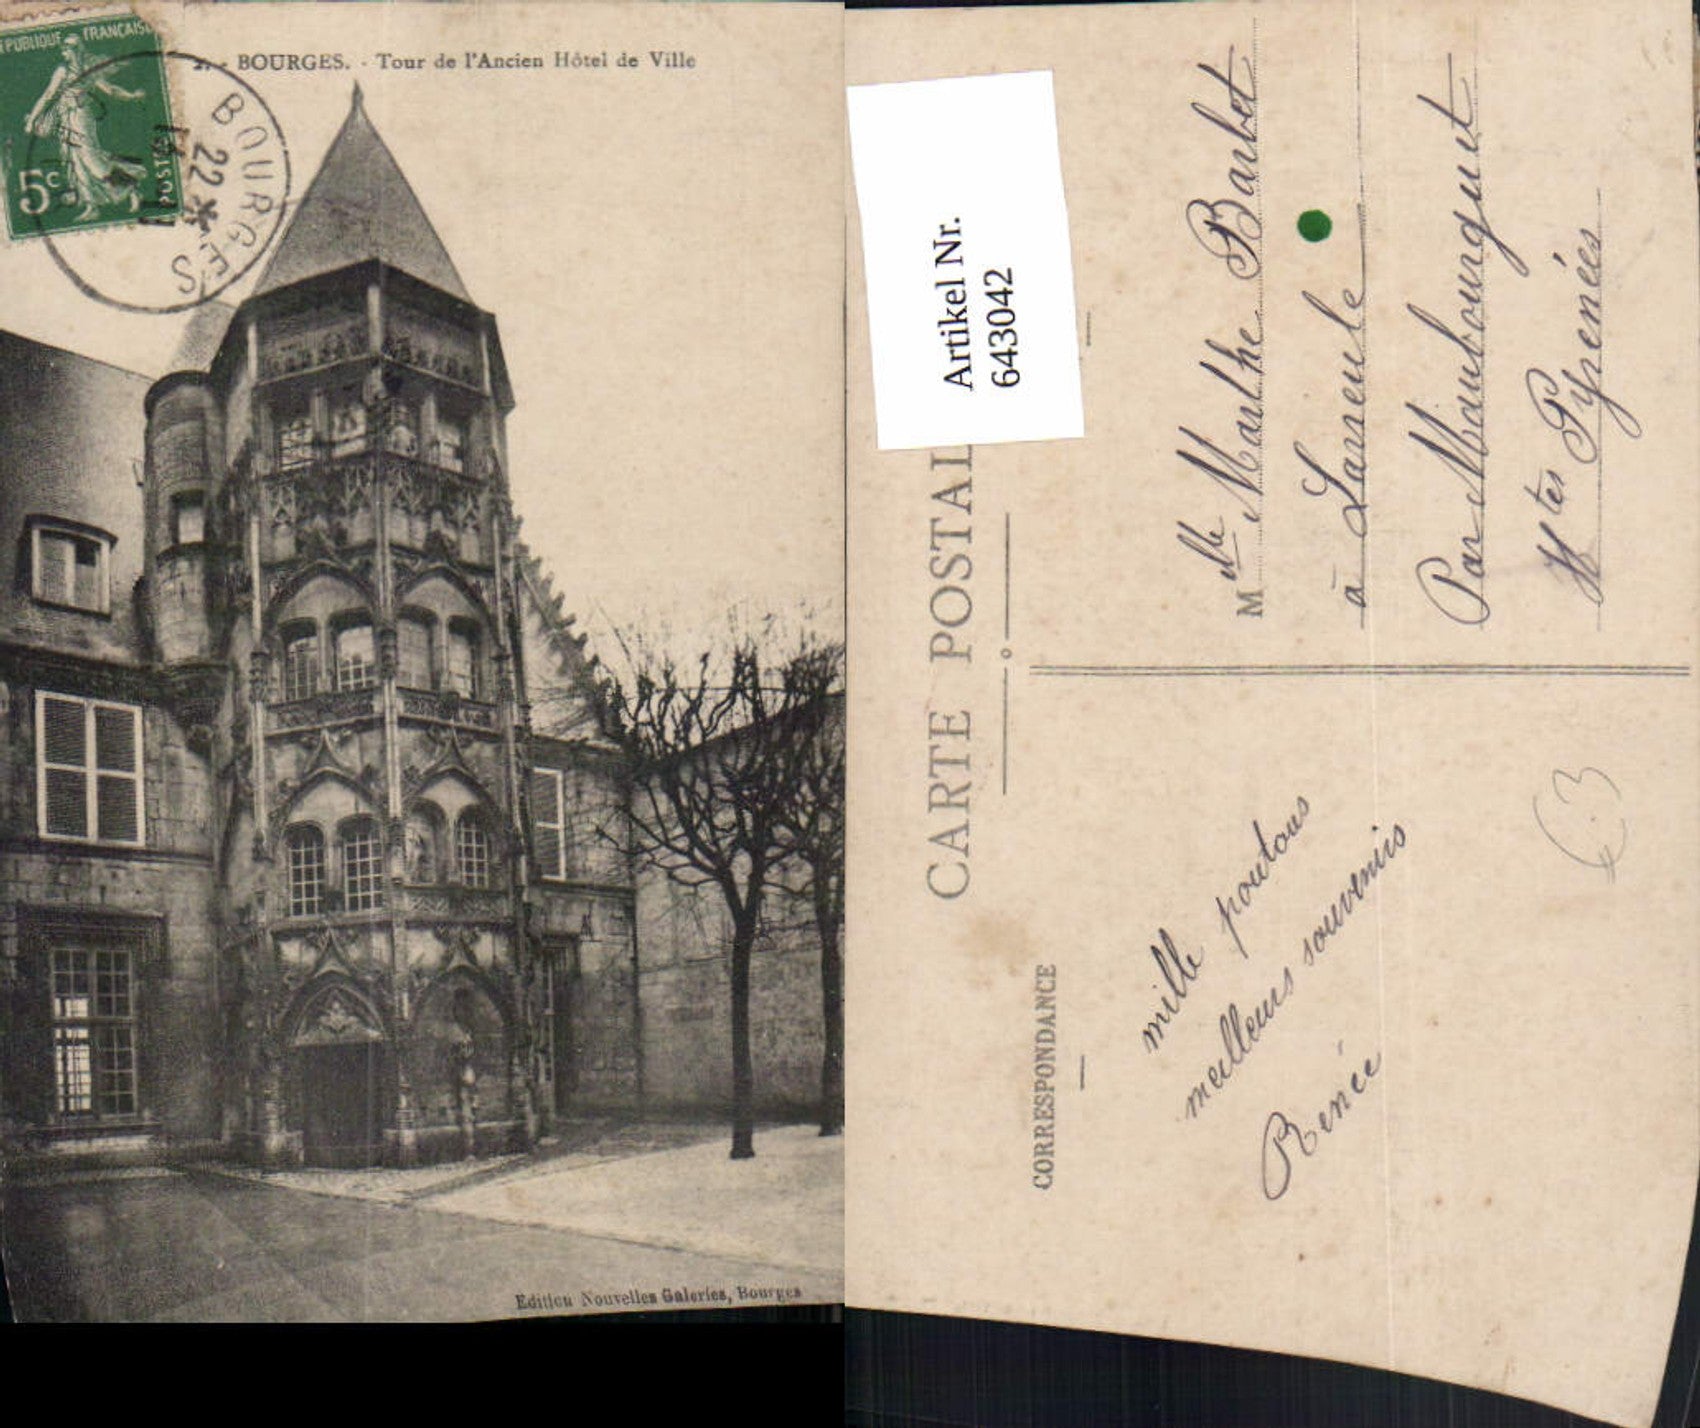 BOURGES. - Tour de l'Ancien Hôtel de Ville
REPUBLIQUE FRANÇAISE
5c
POSTES
BOURGES
22
Edition Nouvelles Galeries, Bourges
Artikel Nr.
643042
CARTE POSTAL
CORRESPONDANCE
Mlle Marthe Barbet
à Larreule
Par Maubourguet
Htes Pyrénées
mille poutous
meilleurs souvenirs
Renée